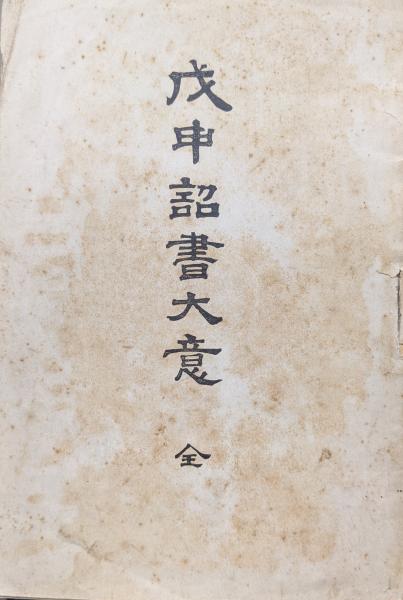 戊申詔書大意 全